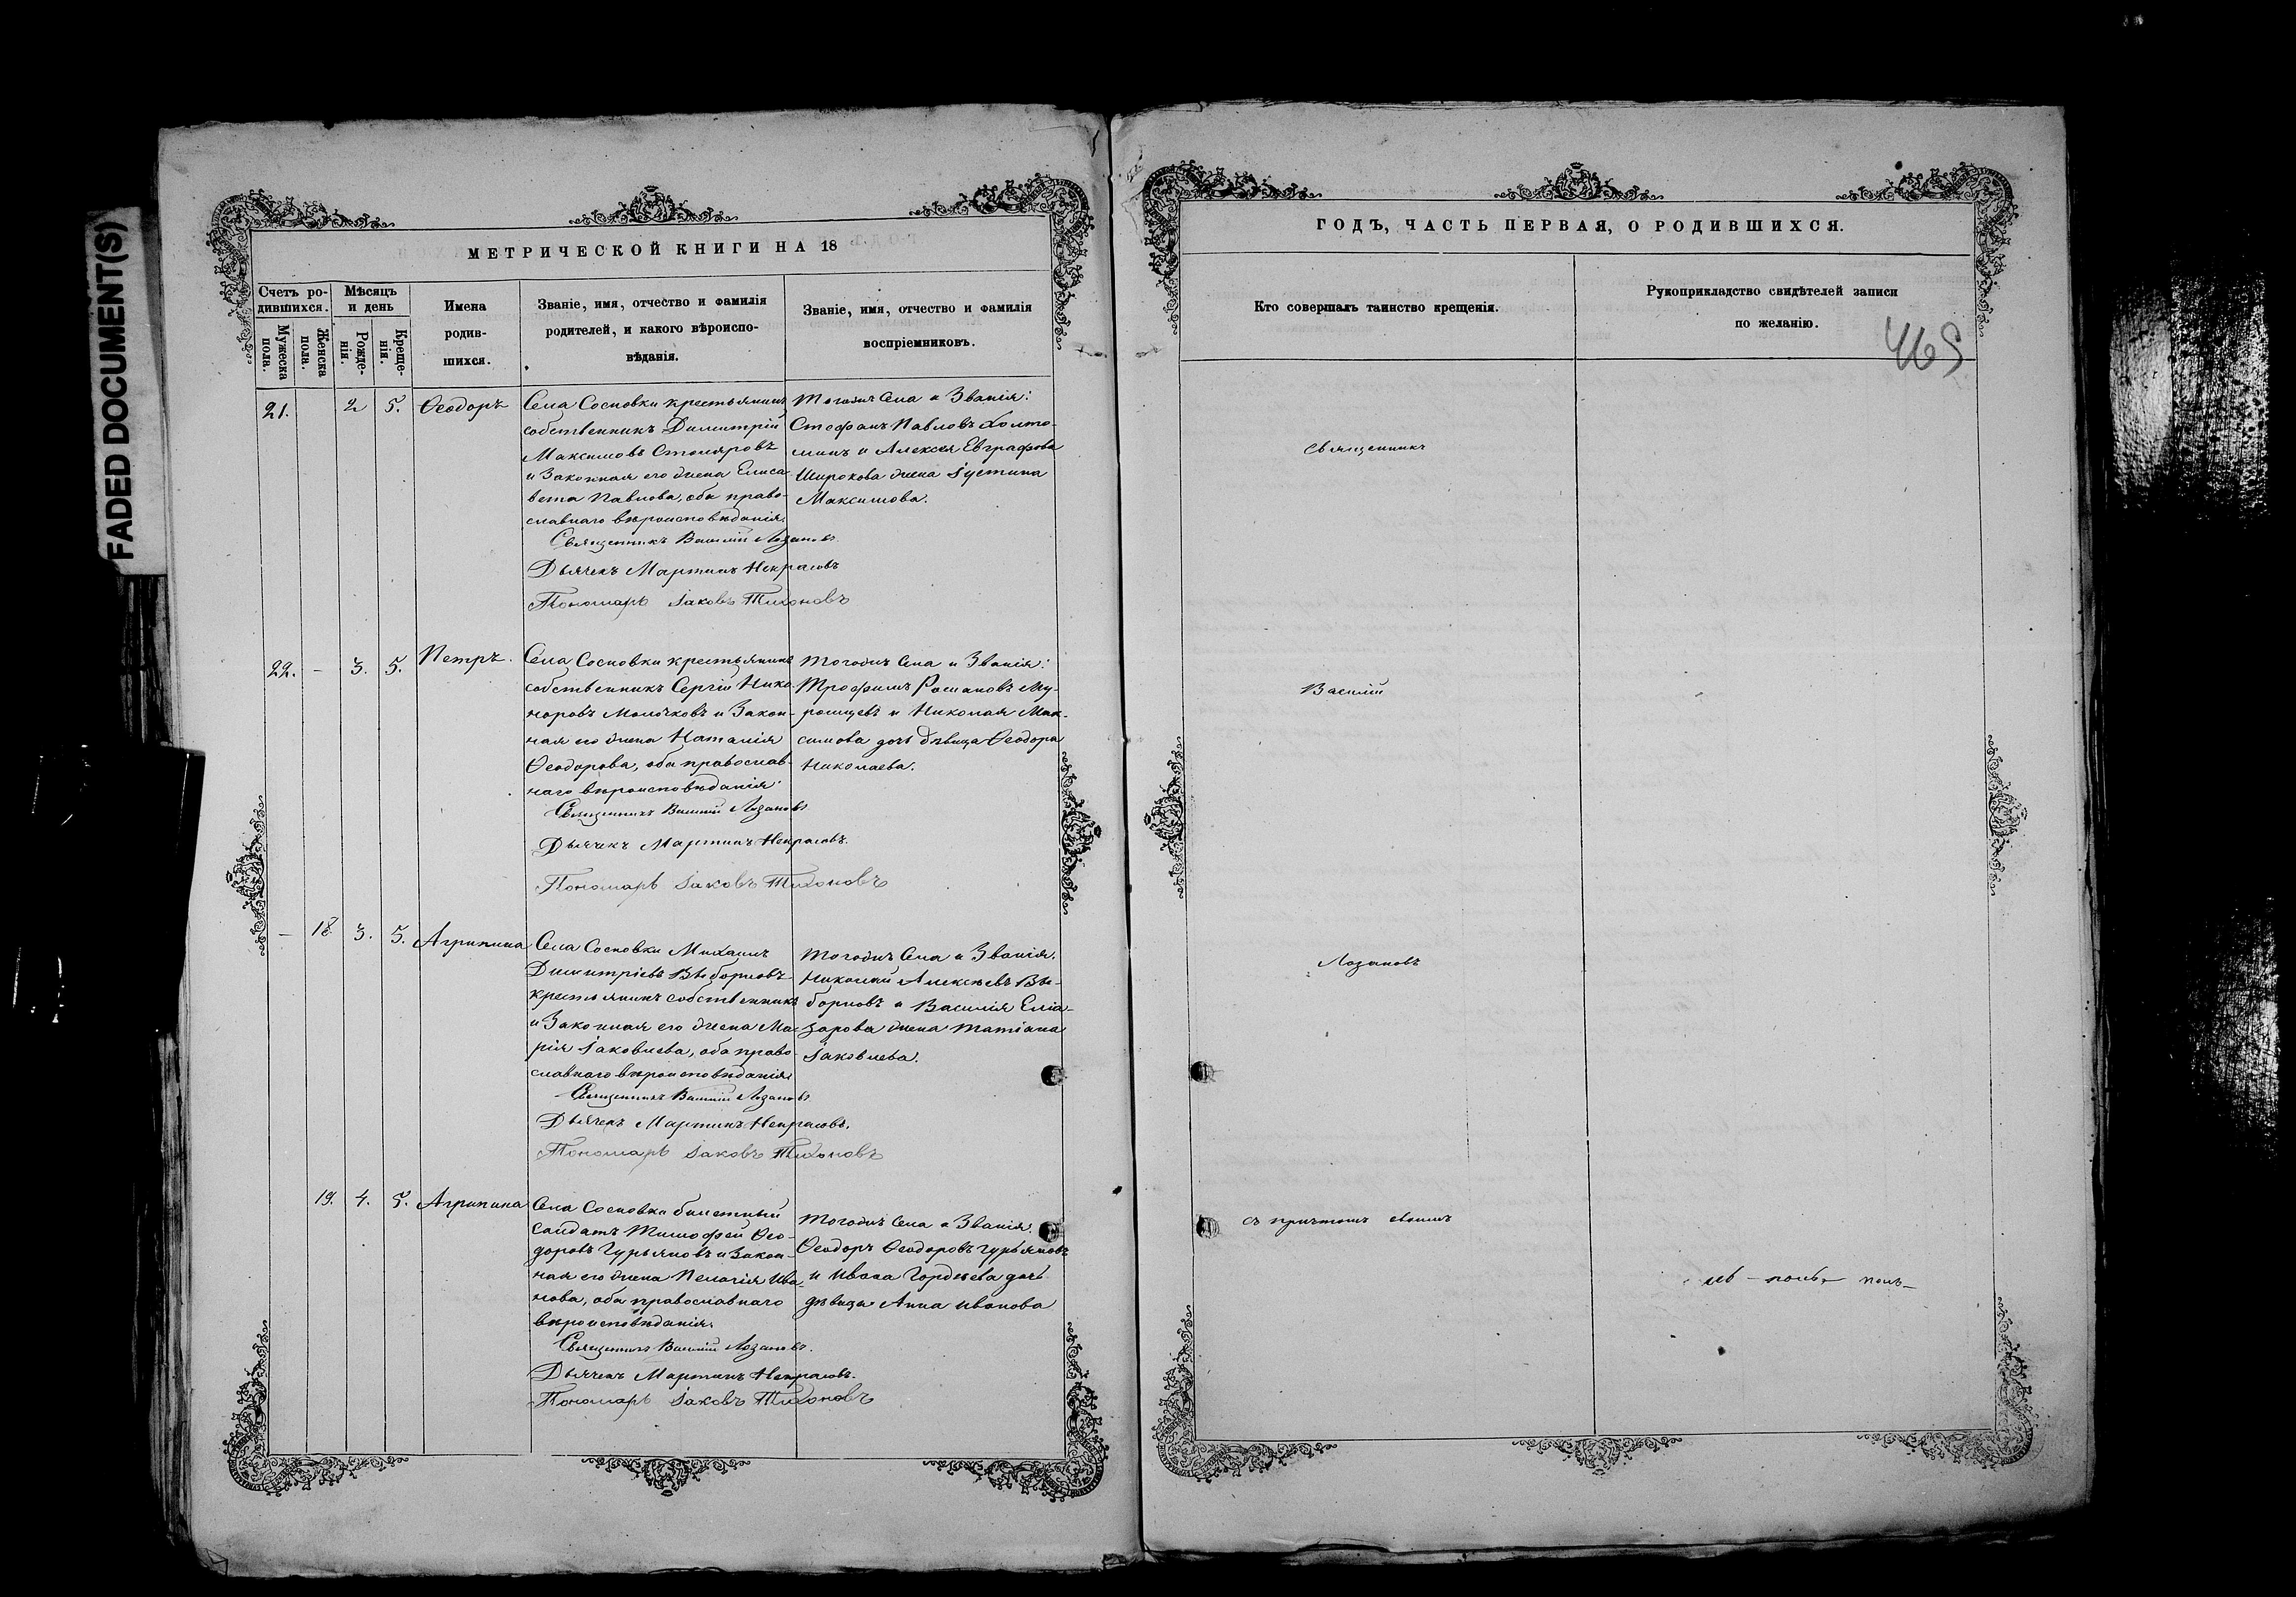 FADED DOCUMENT(S)
МЕТРИЧЕСКОЙ КНИГИ НА 18
Счетъ ро-
дившихся.
Мѣсяцъ
и день
Мужеска
пола.
Женска
пола.
Рожде-
нія.
Креще-
нія.
Имена
родив-
шихся.
Званіе, имя, отчество и фамилія
родителей, и какого вѣроиспо-
вѣданія.
Званіе, имя, отчество и фамилія
воспріемниковъ.
21.
2
5.
Ѳеодоръ
Села Сосновки крестьянинъ
собственникъ Димитрій
Максимовъ Столяровъ
и Законная его жена Елиса
вета Павлова, оба право-
славнаго вѣроисповѣданія.
Священникъ Василій Лозановъ
Дьячекъ Мартинъ Некрасовъ
Пономарь Іаковъ Тихоновъ
Тогожъ Села и Званія:
Стефанъ Павловъ Холто-
минъ и Алексея Евграфова
Широкова жена Іустина
Максимова.
22.
–
3.
5.
Петръ.
Села Сосновки крестьянинъ
собственникъ Сергій Ника
норовъ Молочковъ и Закон-
ная его жена Наталія
Ѳеодорова, оба православ-
наго вѣроисповѣданія.
Священникъ Василій Лозановъ
Дьячекъ Мартинъ Некрасовъ.
Пономарь Іаковъ Тихоновъ
Тогожъ Села и Званія:
Трофимъ Романовъ Му-
ромцевъ и Николая Мак-
симова дочь дѣвица Ѳеодора
Николаева.
–
18
3.
5.
Агрипина
Села Сосновки Михаилъ
Димитріевъ Выборновъ
крестьянинъ собственникъ
и Законная его жена Ма-
рія Іаковлева, оба право-
славнаго вѣроисповѣданія
Священникъ Василій Лозановъ
Дьячекъ Мартинъ Некрасовъ.
Пономарь Іаковъ Тихоновъ
Тогожъ Села и Званія.
Николай Алексѣевъ Вы-
борновъ и Василія Елиа-
зарова жена Татіана
Іаковлева.
19.
4.
5.
Агрипина
Села Сосновки билетный
Солдатъ Тимофей Ѳео-
доровъ Гурьяновъ и Закон-
ная его жена Пелагія Ива
нова, оба православнаго
вѣроисповѣданія.
Священникъ Василій Лозановъ.
Дьячекъ Мартинъ Некрасовъ.
Пономарь Іаковъ Тихоновъ
Тогожъ Села и Званія.
Ѳеодоръ Ѳеодоровъ Гурьяновъ
и Ивана Гордѣева дочь
дѣвица Анна Иванова
ГОДЪ, ЧАСТЬ ПЕРВАЯ, О РОДИВШИХСЯ.
Кто совершалъ таинство крещенія.
Рукоприкладство свидѣтелей записи
по желанію.
469
Священникъ
Василій
Лозановъ
съ причтомъ своимъ